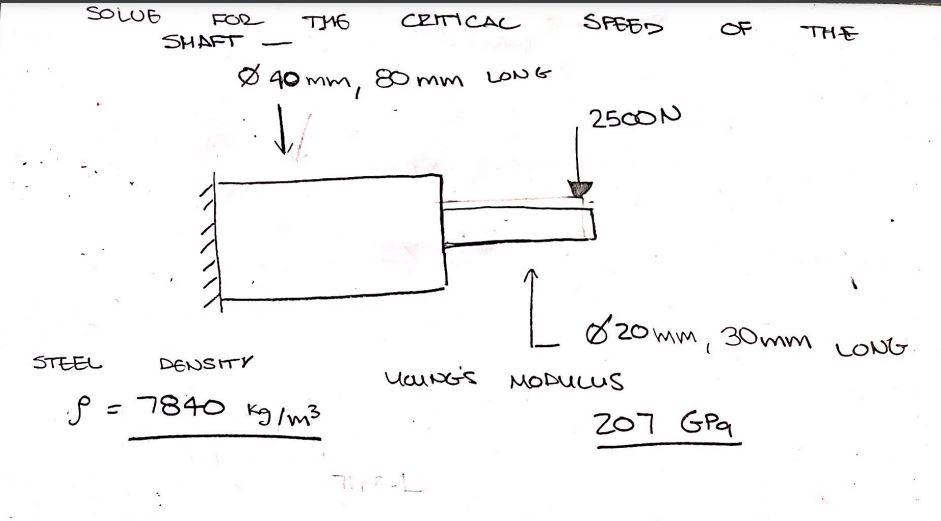 SOLVE FOR THE CRITICAL SPEED OF THE
SHAFT —
Ø 40 mm, 80 mm LONG
2500 N
Ø 20 mm, 30 mm LONG
STEEL DENSITY
YOUNG'S MODULUS
ρ = 7840 kg/m³
207 GPa